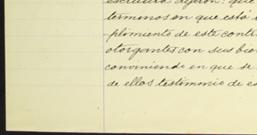 escritura dijeron: que
terminos en que está
plimiento de este contr
otorgantes con sus bie
conveniendo en que se
de ellos testimonio de es